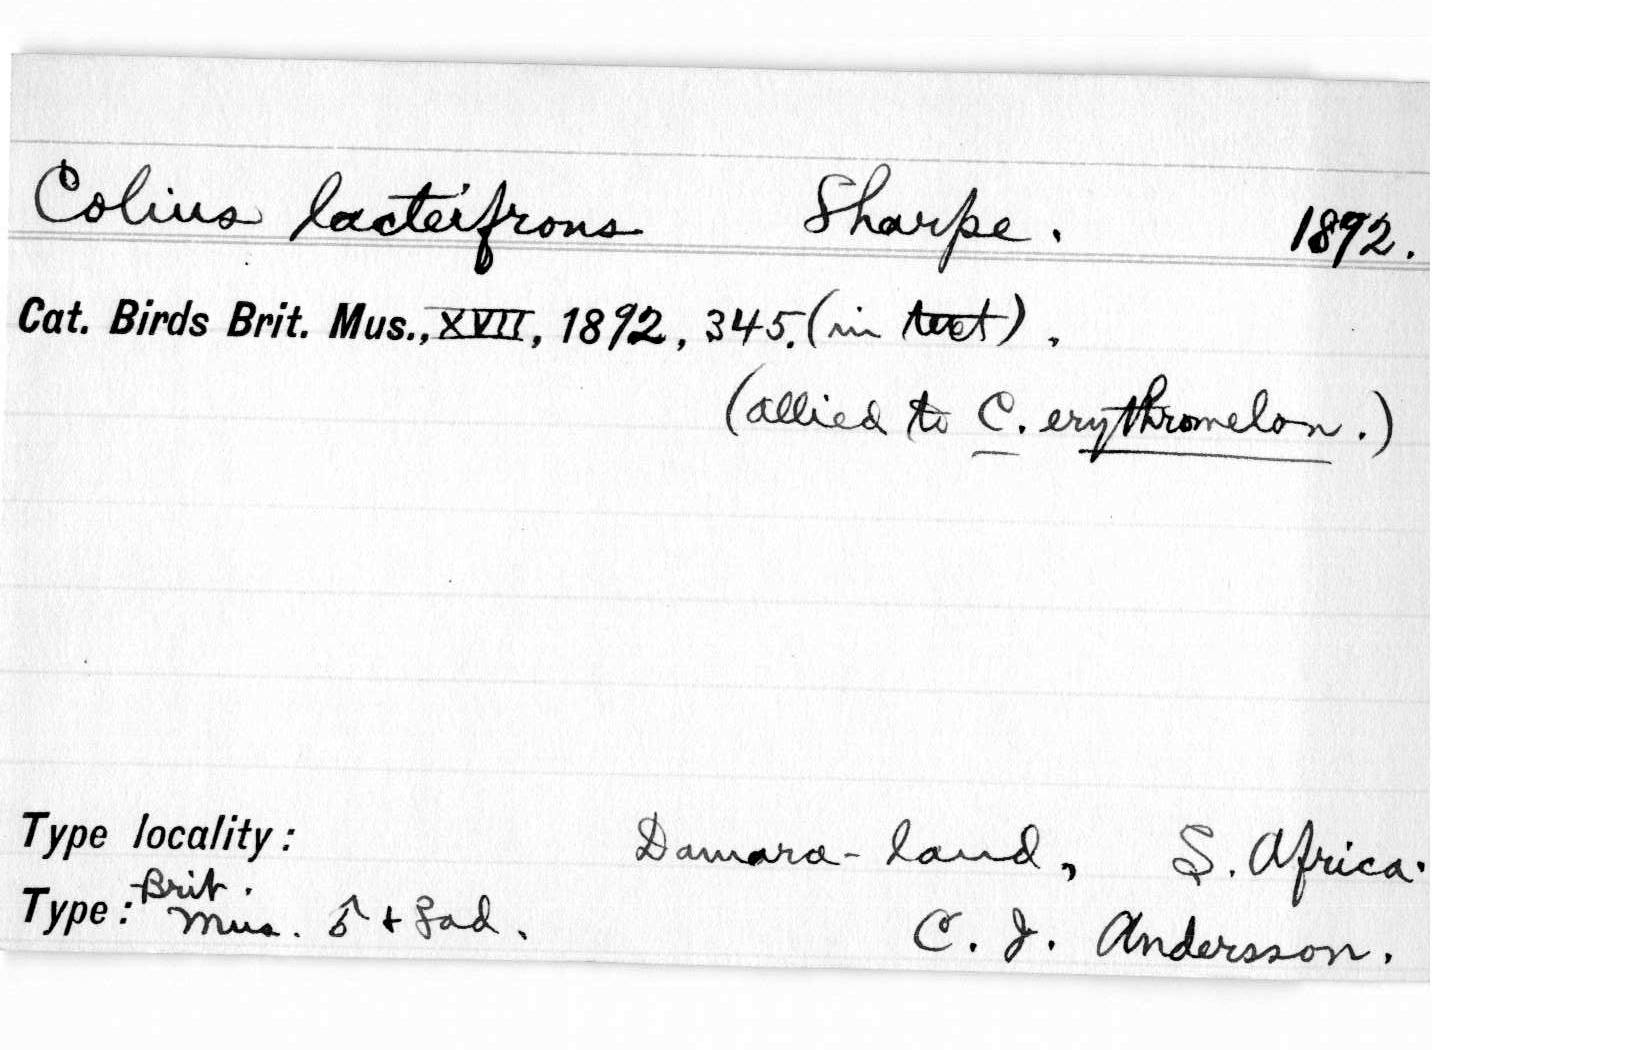 Colius lacteifrons Sharpe. 1892.
Cat. Birds Brit. Mus., XVII, 1892, 345. (in text).
(allied to C. erythromelon.)
Type locality: Damara-land, S. Africa.
Type: Brit. Mus. ♂ + ♀ ad. C. J. Andersson.